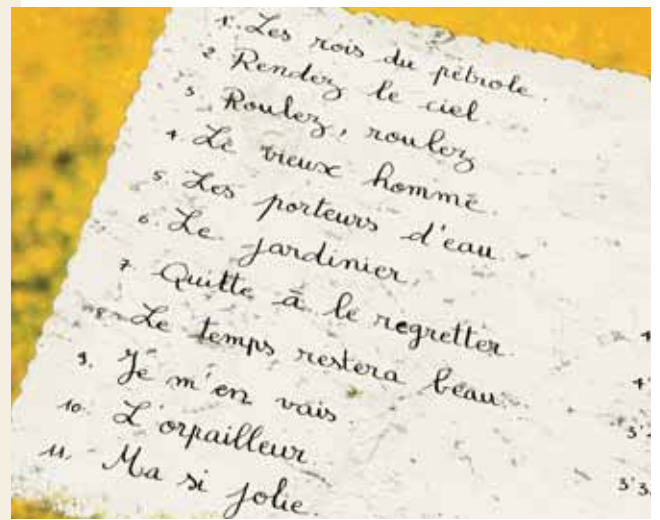 1. Les rois du pétrole.
2 Rendez le ciel.
3 Roulez, roulez
4 Le vieux homme.
5. Les porteurs d'eau
6. Le jardinier.
7. Quitte à le regretter.
8. Le temps restera beau.
9. Je m'en vais.
10. L'orpailleur.
11. Ma si jolie.